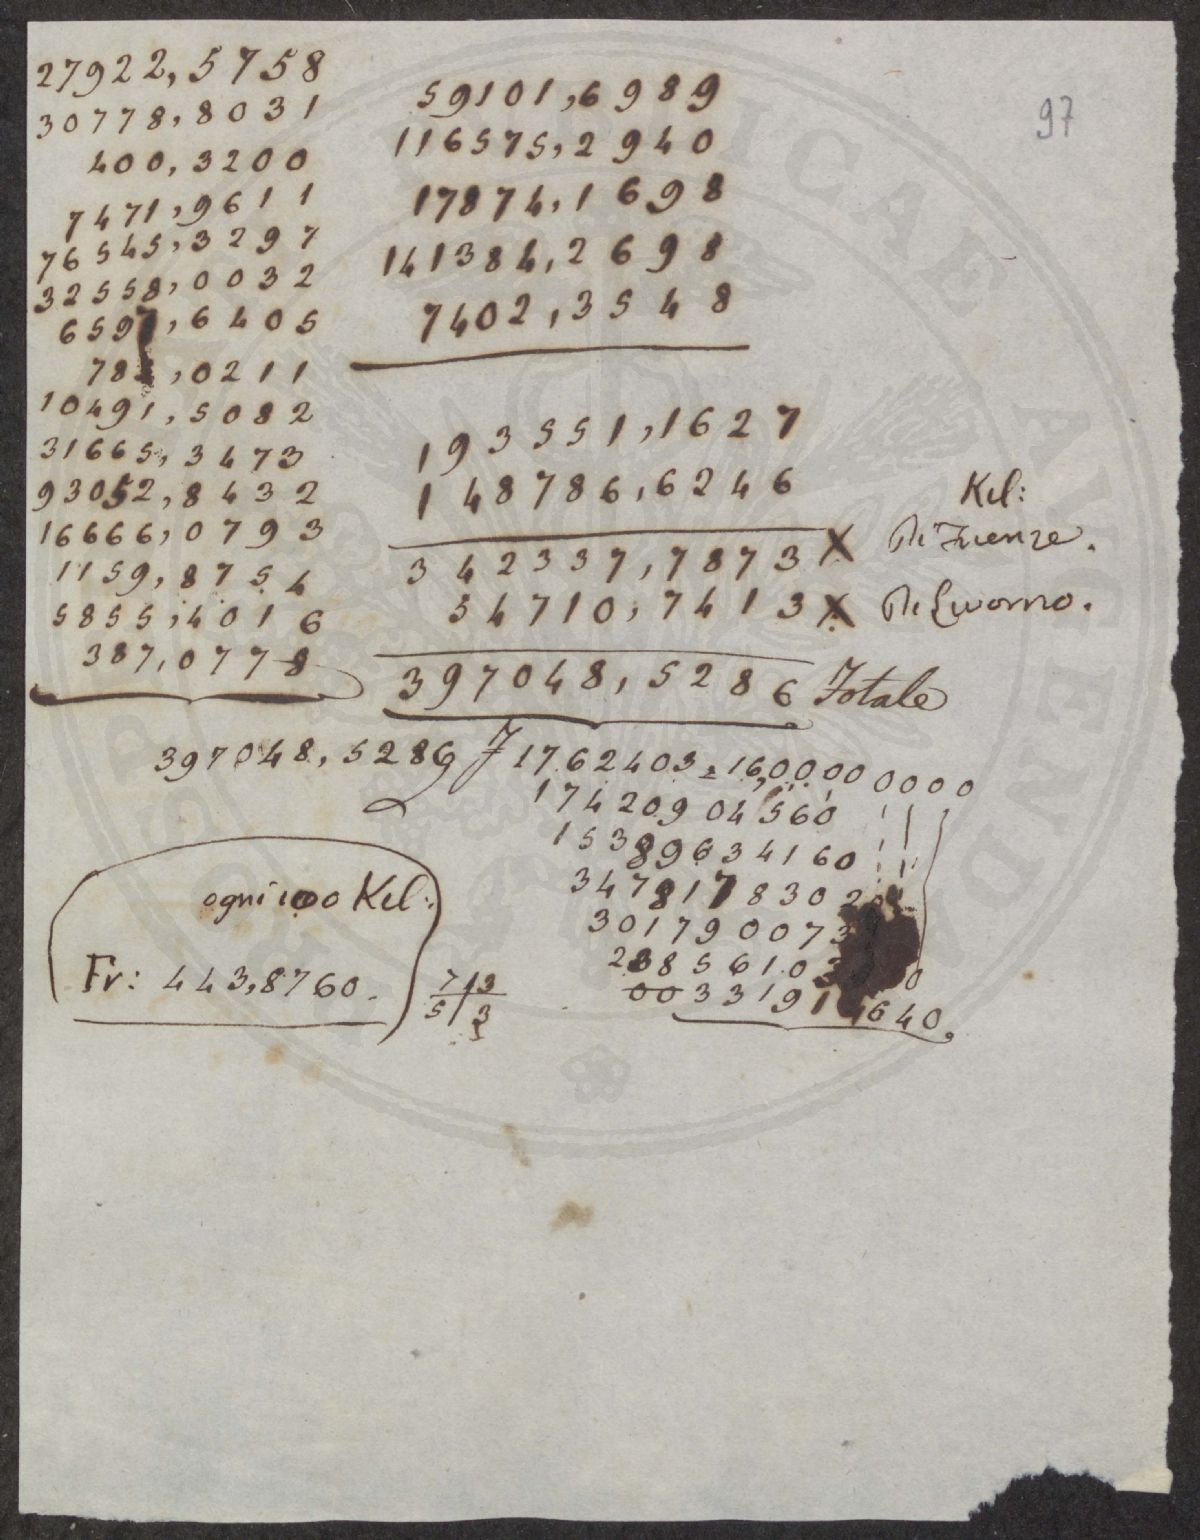 97
27922,5758
30778,8031
400,3200
7471,9611
76545,3297
32558,0032
6597,6405
78 ,0211
10491,5082
31665,3473
93052,8432
16666,0793
1159,8754
5855,4016
387,0778
59101,6989
116575,2940
17874,1698
141384,2698
7402,3548
193551,1627
148786,6246
Kil:
342337,7873 X Di Firenze.
54710,7413 X Di Livorno.
397048,5286 Totale
397048,5286 f 1762403=16,0000 0000
174209 04560
153896 34160
347817 8302
301790073
2385610
0033191 640.
ogni 1000 Kil:
Fr: 443,8760.
7 3
5 3
DOMINICAE AVGENDAE